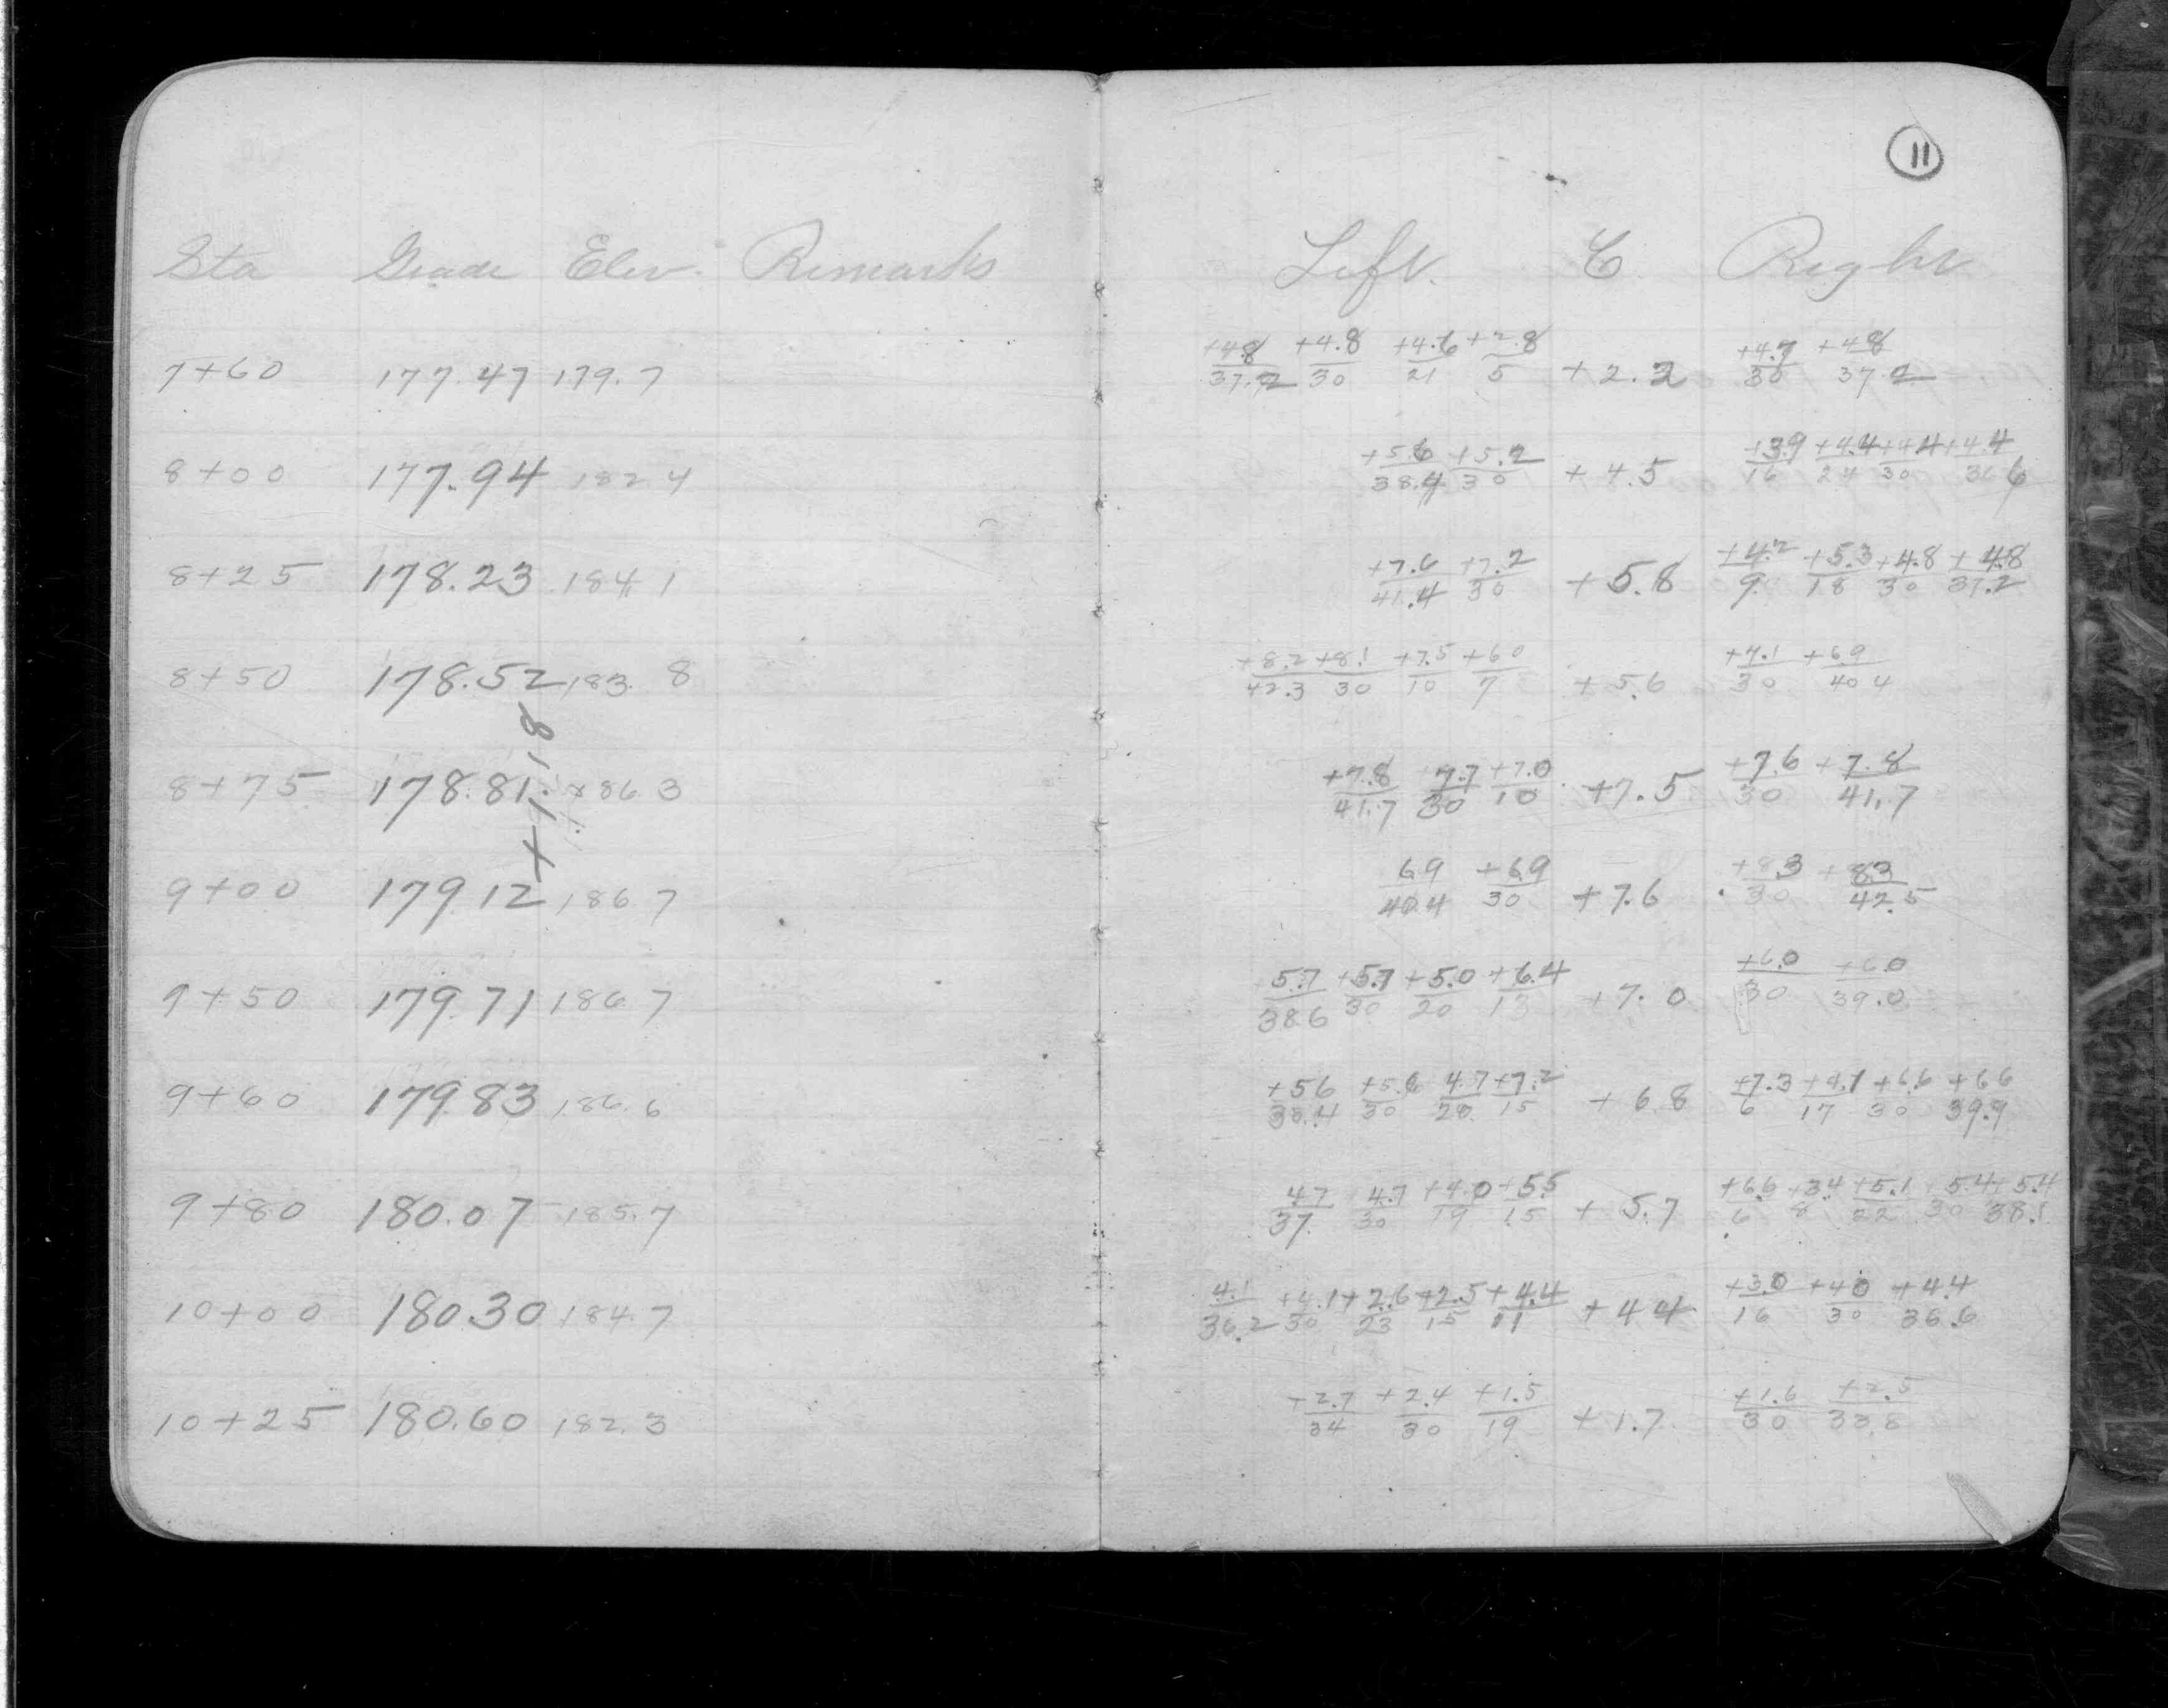 11
Sta Grade Elev. Remarks Left. C Right
7+60 177.47 179.7 +4.8/37.2 +4.8/30 +4.6/21 +2.8/5 +2.2 +4.7/30 +4.8/37.2
8+00 177.94 182.4 +5.6/38.4 +5.2/30 +4.5 +3.9/16 +4.4/24 +4.4/30 +4.4/36.6
8+25 178.23 184.1 +7.6/41.4 +7.2/30 +5.8 +4.2/9 +5.3/18 +4.8/30 +4.8/37.2
8+50 178.52 183.8 +8.2/42.3 +8.1/30 +7.5/10 +6.0/7 +5.6 +7.1/30 +6.9/40.4
+1.18
8+75 178.81 186.3 +7.8/41.7 7.7/30 +7.0/10 +7.5 +7.6/30 +7.8/41.7
9+00 179.12 186.7 6.9/40.4 +6.9/30 +7.6 +8.3/30 +8.3/42.5
9+50 179.71 186.7 5.7/38.6 +5.7/30 +5.0/20 +6.4/13 +7.0 +6.0/30 +6.0/39.0
9+60 179.83 186.6 +5.6/38.4 +5.6/30 4.7/20 +7.2/15 +6.8 +7.3/6 /17 +6.6/30 +6.6/39.9
9+80 180.07 185.7 4.7/37. 4.7/30 +4.0/19 +5.5/15 +5.7 +6.6/6 +3.4/8 +5.1/22 +5.4/30 +5.4/38.1
10+00 180.30 184.7 4.1/36.2 +4.1/30 +2.6/23 +2.5/15 +4.4/11 +4.4 +3.0/16 +4.0/30 +4.4/36.6
10+25 180.60 182.3 +2.7/34 +2.4/30 +1.5/19 +1.7 +1.6/30 +2.5/33.8